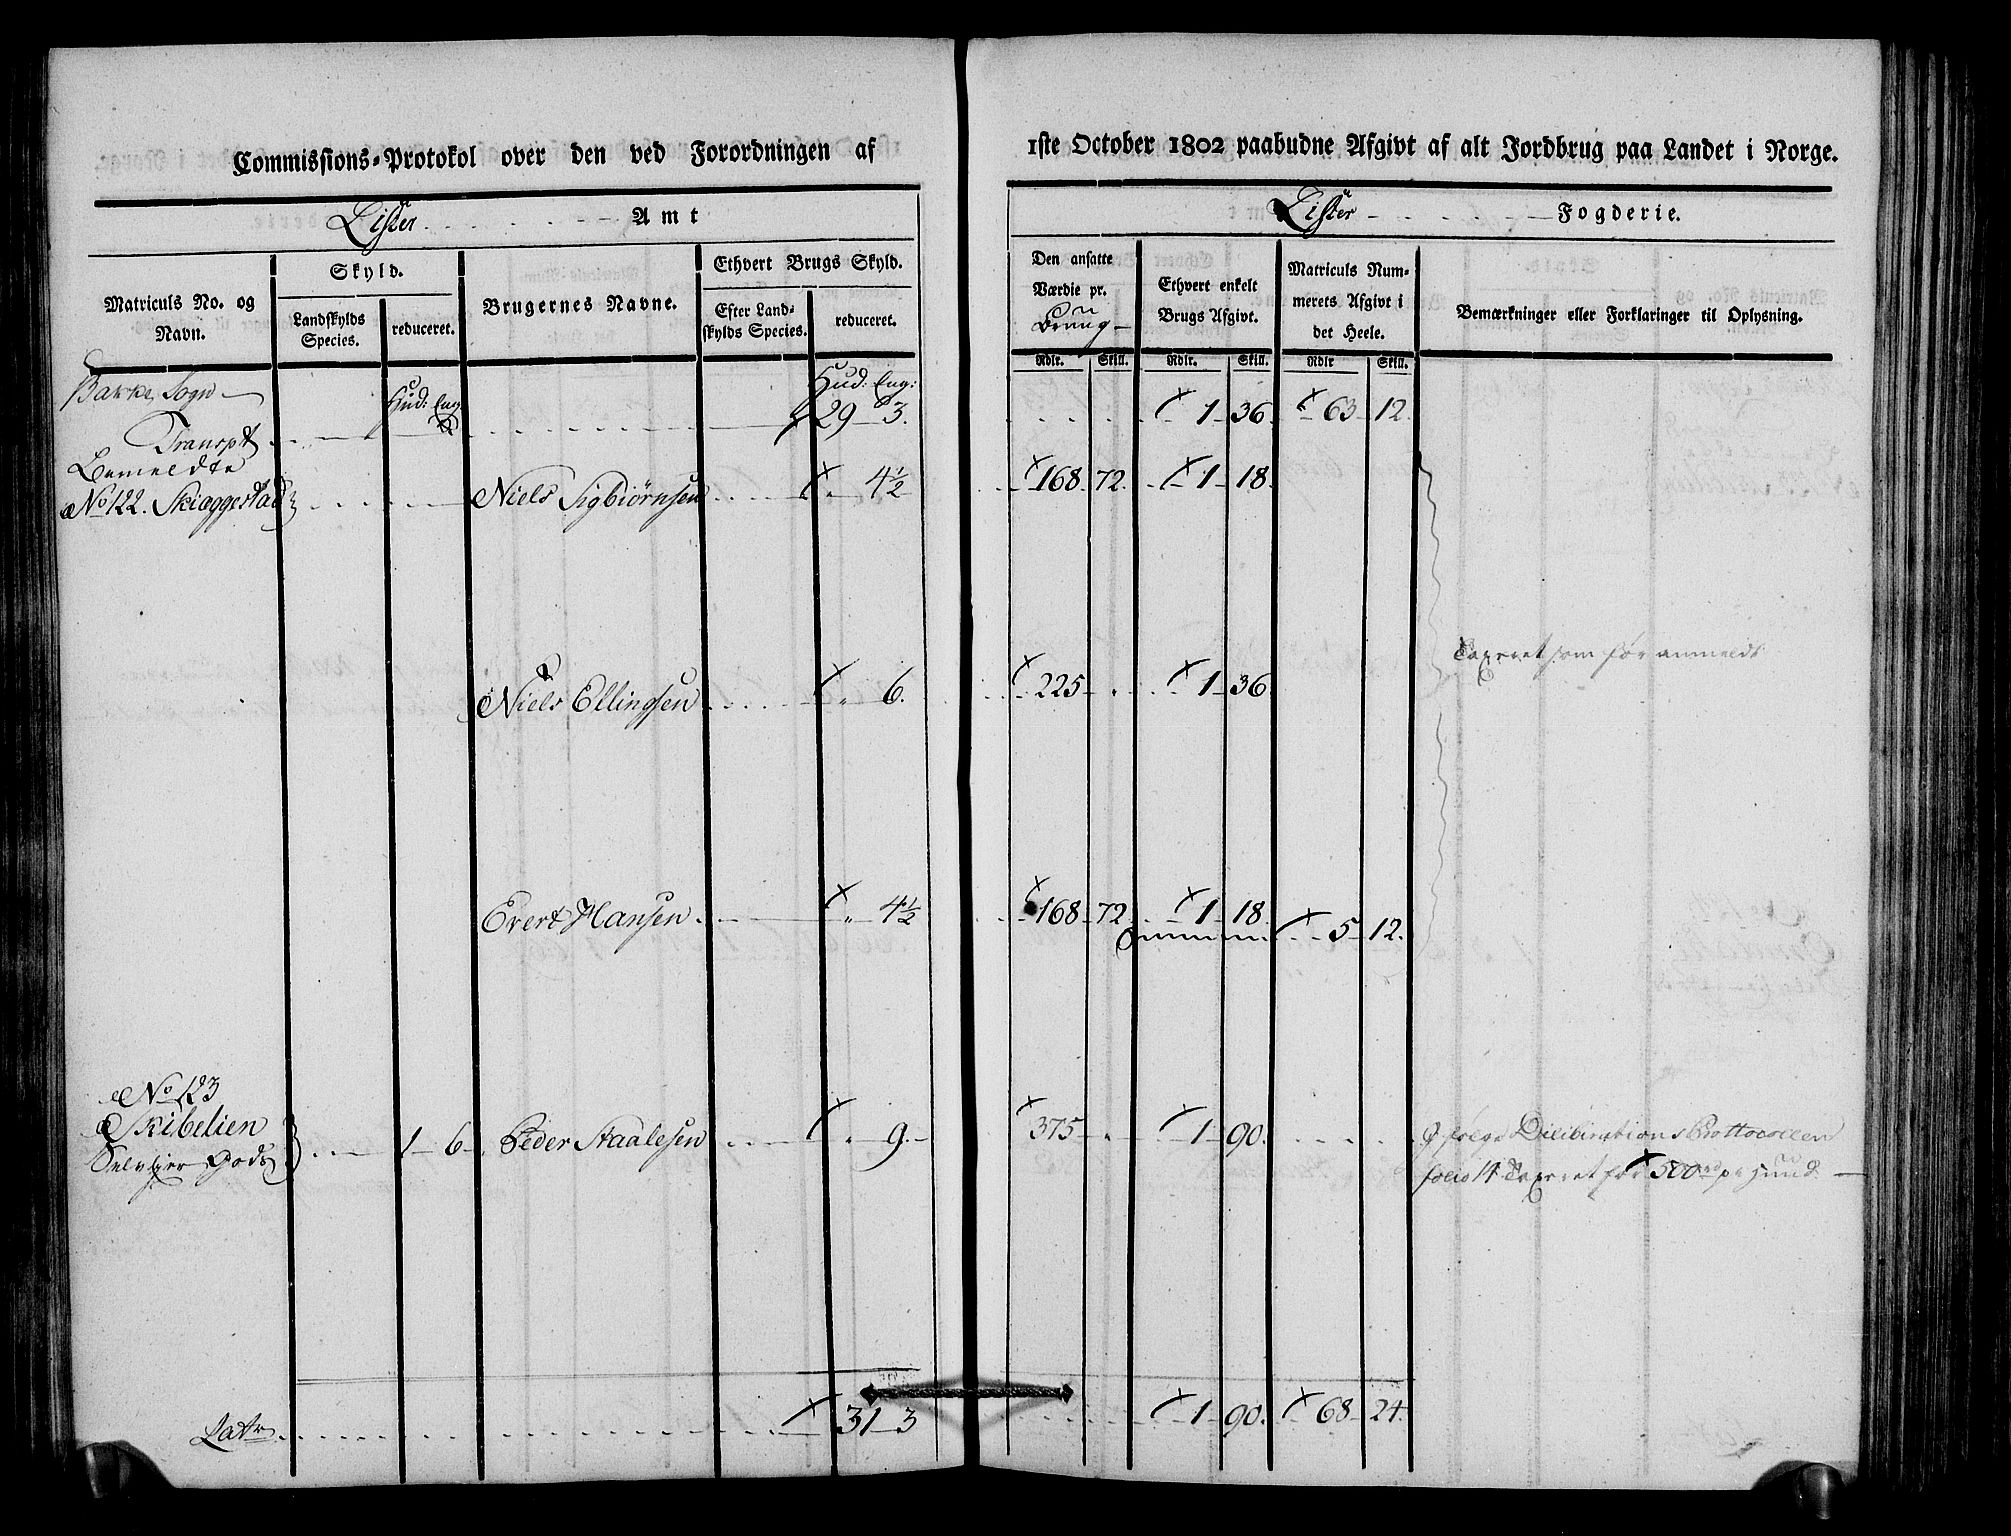 Commissions-Protokol over den ved Forordningen af
1ste October 1802 paabudne Afgivt af alt Jordbrug paa Landet i Norge.
Lister Amt
Lister Fogderie.
Matriculs No. og Navn.
Skyld.
Landskylds Species.
reduceret.
Brugernes Navne.
Ethvert Brugs Skyld.
Efter Land-
skylds Species.
reduceret.
Den ansatte
Værdie pr.
Bruug
Ethvert enkelt
Brugs Afgivt.
Matriculs Num-
merets Afgivt i
det Heele.
Bemærkninger eller Forklaringer til Oplysning.
Rdlr. Skill. Rdlr. Skill. Rdlr Skill.
Bakke Sogn
Hud: Eng:
Hud: Eng:
Transpt 29 3. 1 36 63 12.
No 122. Skiæggestad Niels Sigbiörnsen 4½ 168 72. 1 18.
Taxeret som før anmeldt
Niels Ellingsen 6. 225 1 36
Evert Hansen 4½ 168 72 1 18. 5 12.
No 123
Skibelien 1 6 Peder Staalesen 9. 375 1 90.
Gods
Diliberations Prottocollen
folio 14 Taxeret for 500 rd pr Huud
Latr 31 3 1 90. 68 24.